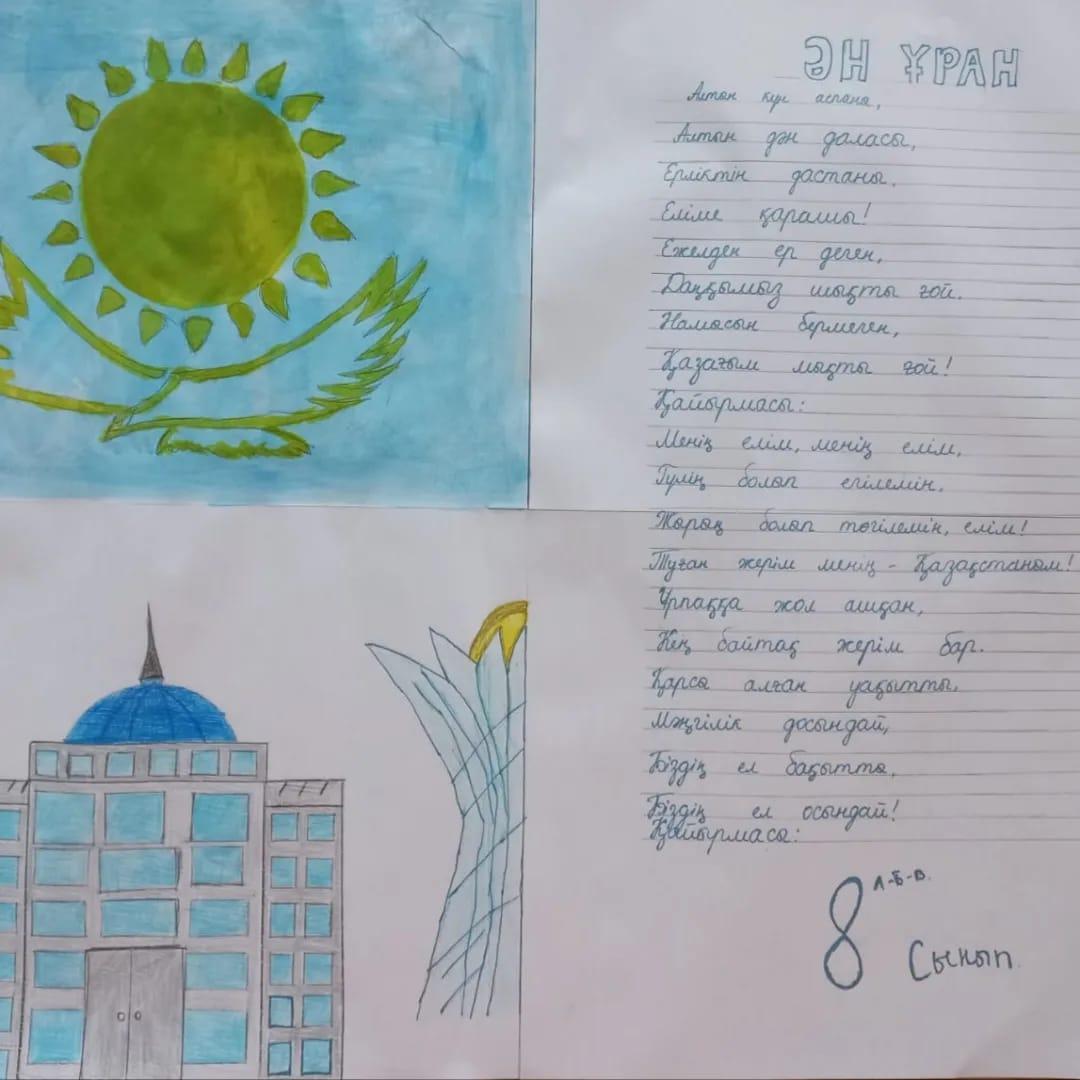 ӘН ҰРАН
Алтын күн аспаны,
Алтын дән даласы,
Ерліктің дастаны,
Еліме қарашы!
Ежелден ер деген,
Даңқымыз шықты ғой.
Намысын бермеген,
Қазағым мықты ғой!
Қайырмасы:
Менің елім, менің елім,
Гүлің болып егілемін,
Жырың болып төгілемін, елім!
Туған жерім менің - Қазақстаным!
Ұрпаққа жол ашқан,
Кең байтақ жерім бар.
Қарсы алған уақытты,
Мәңгілік досындай,
Біздің ел бақытты,
Біздің ел осындай!
Қайырмасы:
8 А-Б-В.
Сынып.